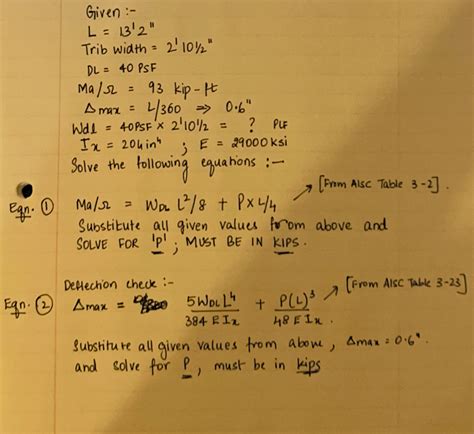 Given :-
L = 13'2"
Trib width = 2'10½"
DL = 40 PSF
Ma/Ω = 93 kip-ft
Δmax = L/360 ⇒ 0.6"
Wdl = 40PSF × 2'10½ = ? PLF
Ix = 204in⁴ ; E = 29000ksi
Solve the following equations :—
Eqn. ① Ma/Ω = WDL L²/8 + P×L/4 → [From AISC Table 3-2].
Substitute all given values from above and
SOLVE FOR 'P' ; MUST BE IN KIPS.
Deflection check :- [From AISC Table 3-23]
Eqn. ② Δmax = 5WDLL⁴/384EIx + P(L)³/48EIx.
Substitute all given values from above, Δmax = 0.6".
and solve for P, must be in kips